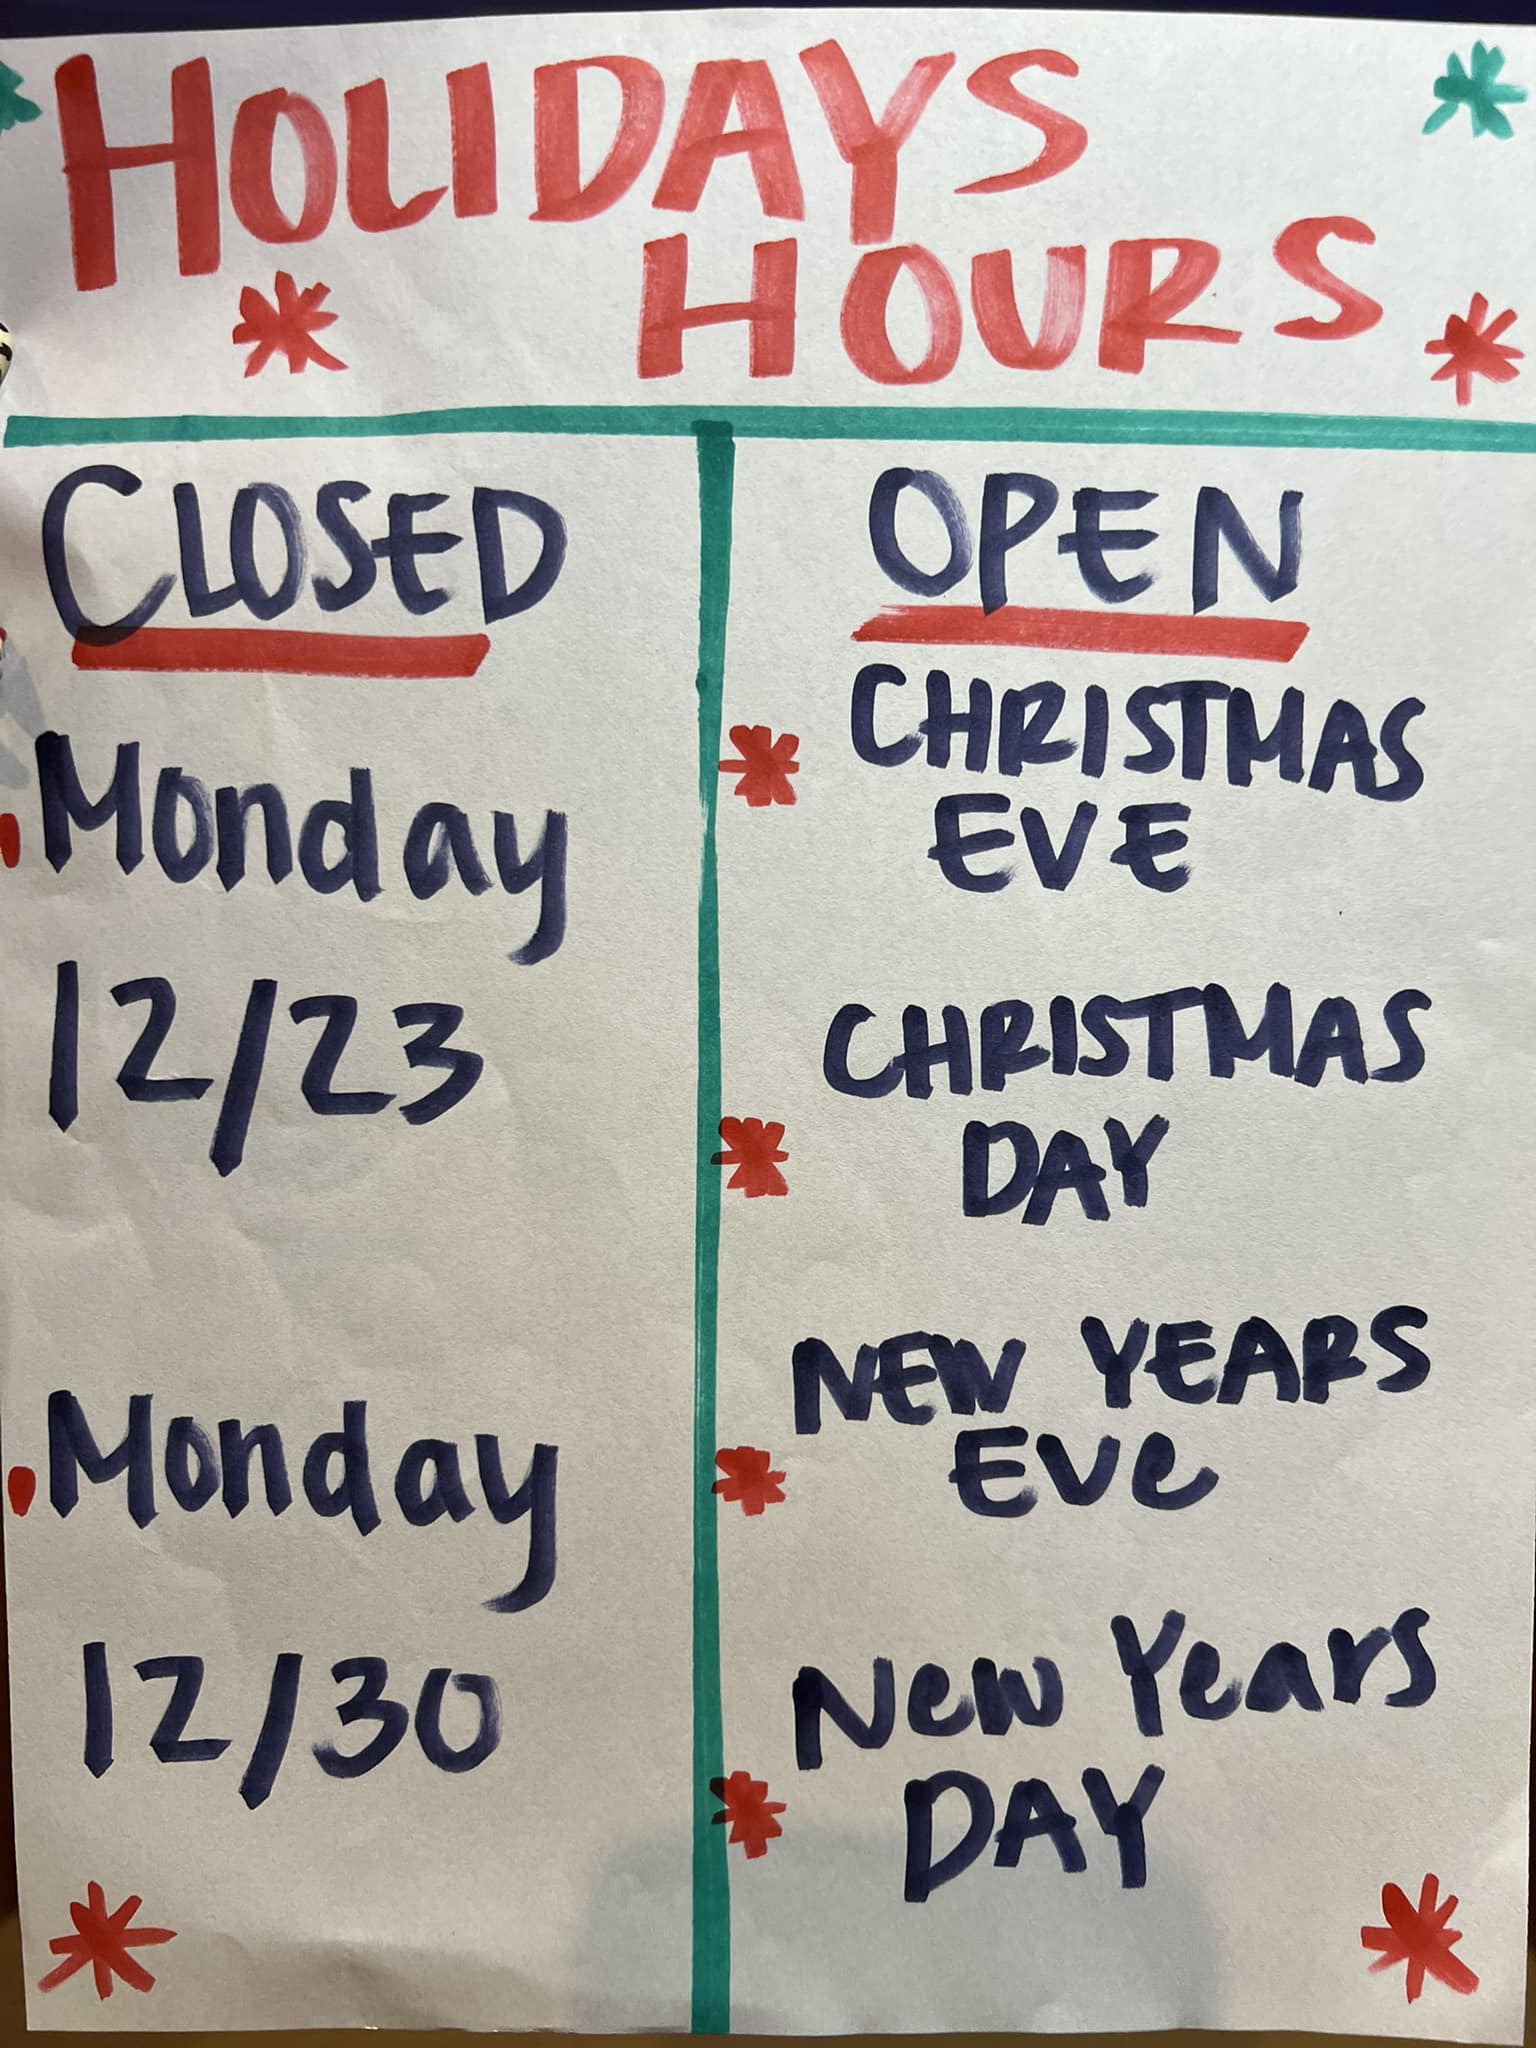 HOLIDAYS
HOURS
CLOSED
Monday
12/23
Monday
12/30
OPEN
CHRISTMAS
EVE
CHRISTMAS
DAY
NEW YEARS
EVe
New Years
DAY